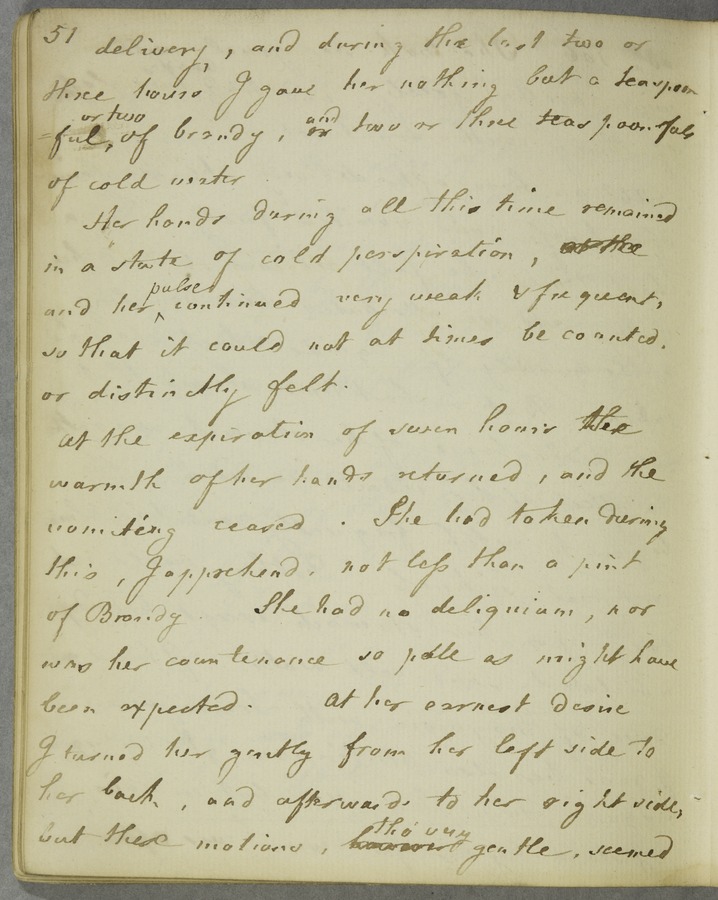 51
delivery, and during the last two or
three hours I gave her nothing but a teaspoon
or two and
=ful, of brandy, or two or three teaspoonfuls
of cold water.
Her hands during all this time remained
in a state of cold perspiration, at the
pulse
and her continued very weak & frequent,
so that it could not at times be counted.
or distinctly felt.
At the expiration of seven hours the
warmth of her hands returned, and the
vomiting ceased. She had taken during
this, I apprehend, not less than a pint
of Brandy. She had no deliquium, nor
was her countenance so pale as might have
been expected. At her earnest desire
I turned her gently from her left side to
her back, and afterwards to her right side,
tho' very
but these motions, however gentle, seemed